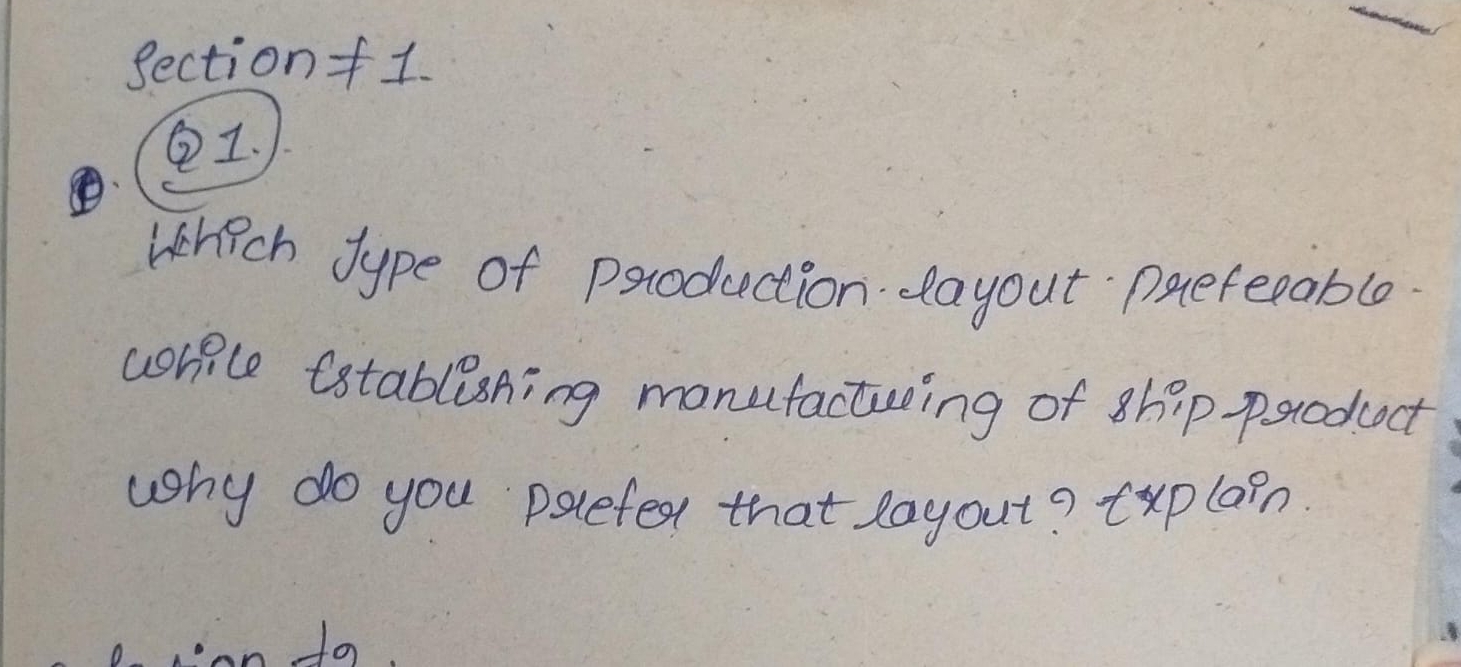 Section # 1.
Q 1.
Which Type of production layout preferable
while Establishing manufacturing of ship product
why do you prefer that layout? Explain.